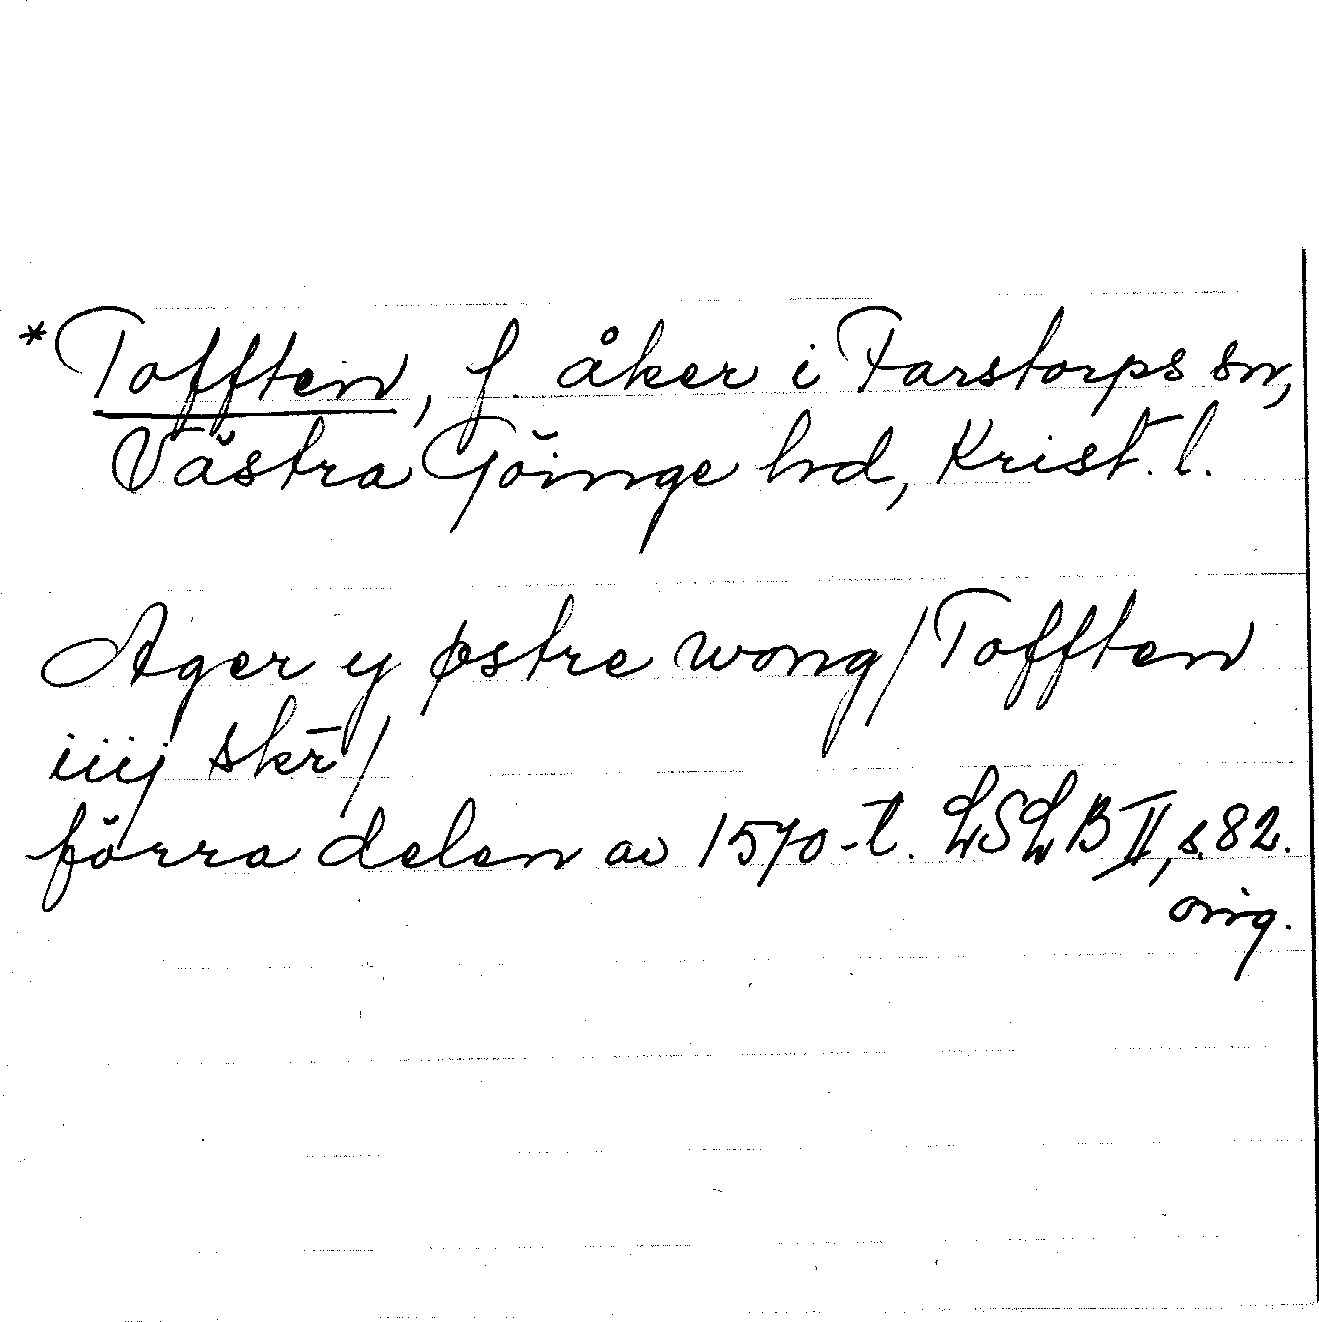 *Tofften, f. åker i Farstorps sn,
Västra Göinge hd, Krist. l.
Ager y østre wong / Tofften
iiij skr̄ /
förra delen av 1570-t. LSLB II, s. 82.
orig.